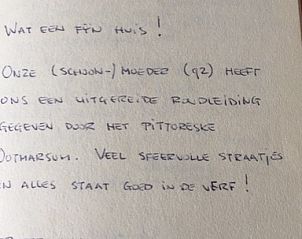 WAT EEN FIJN HUIS!
ONZE (SCHOON-) MOEDER (92) HEEFT
ONS EEN UITGEREIDE RONDLEIDING
GEGEVEN DOOR HET PITTORESKE
OOTMARSUM. VEEL SFEERVOLLE STRAATJES
EN ALLES STAAT GOED IN DE VERF!